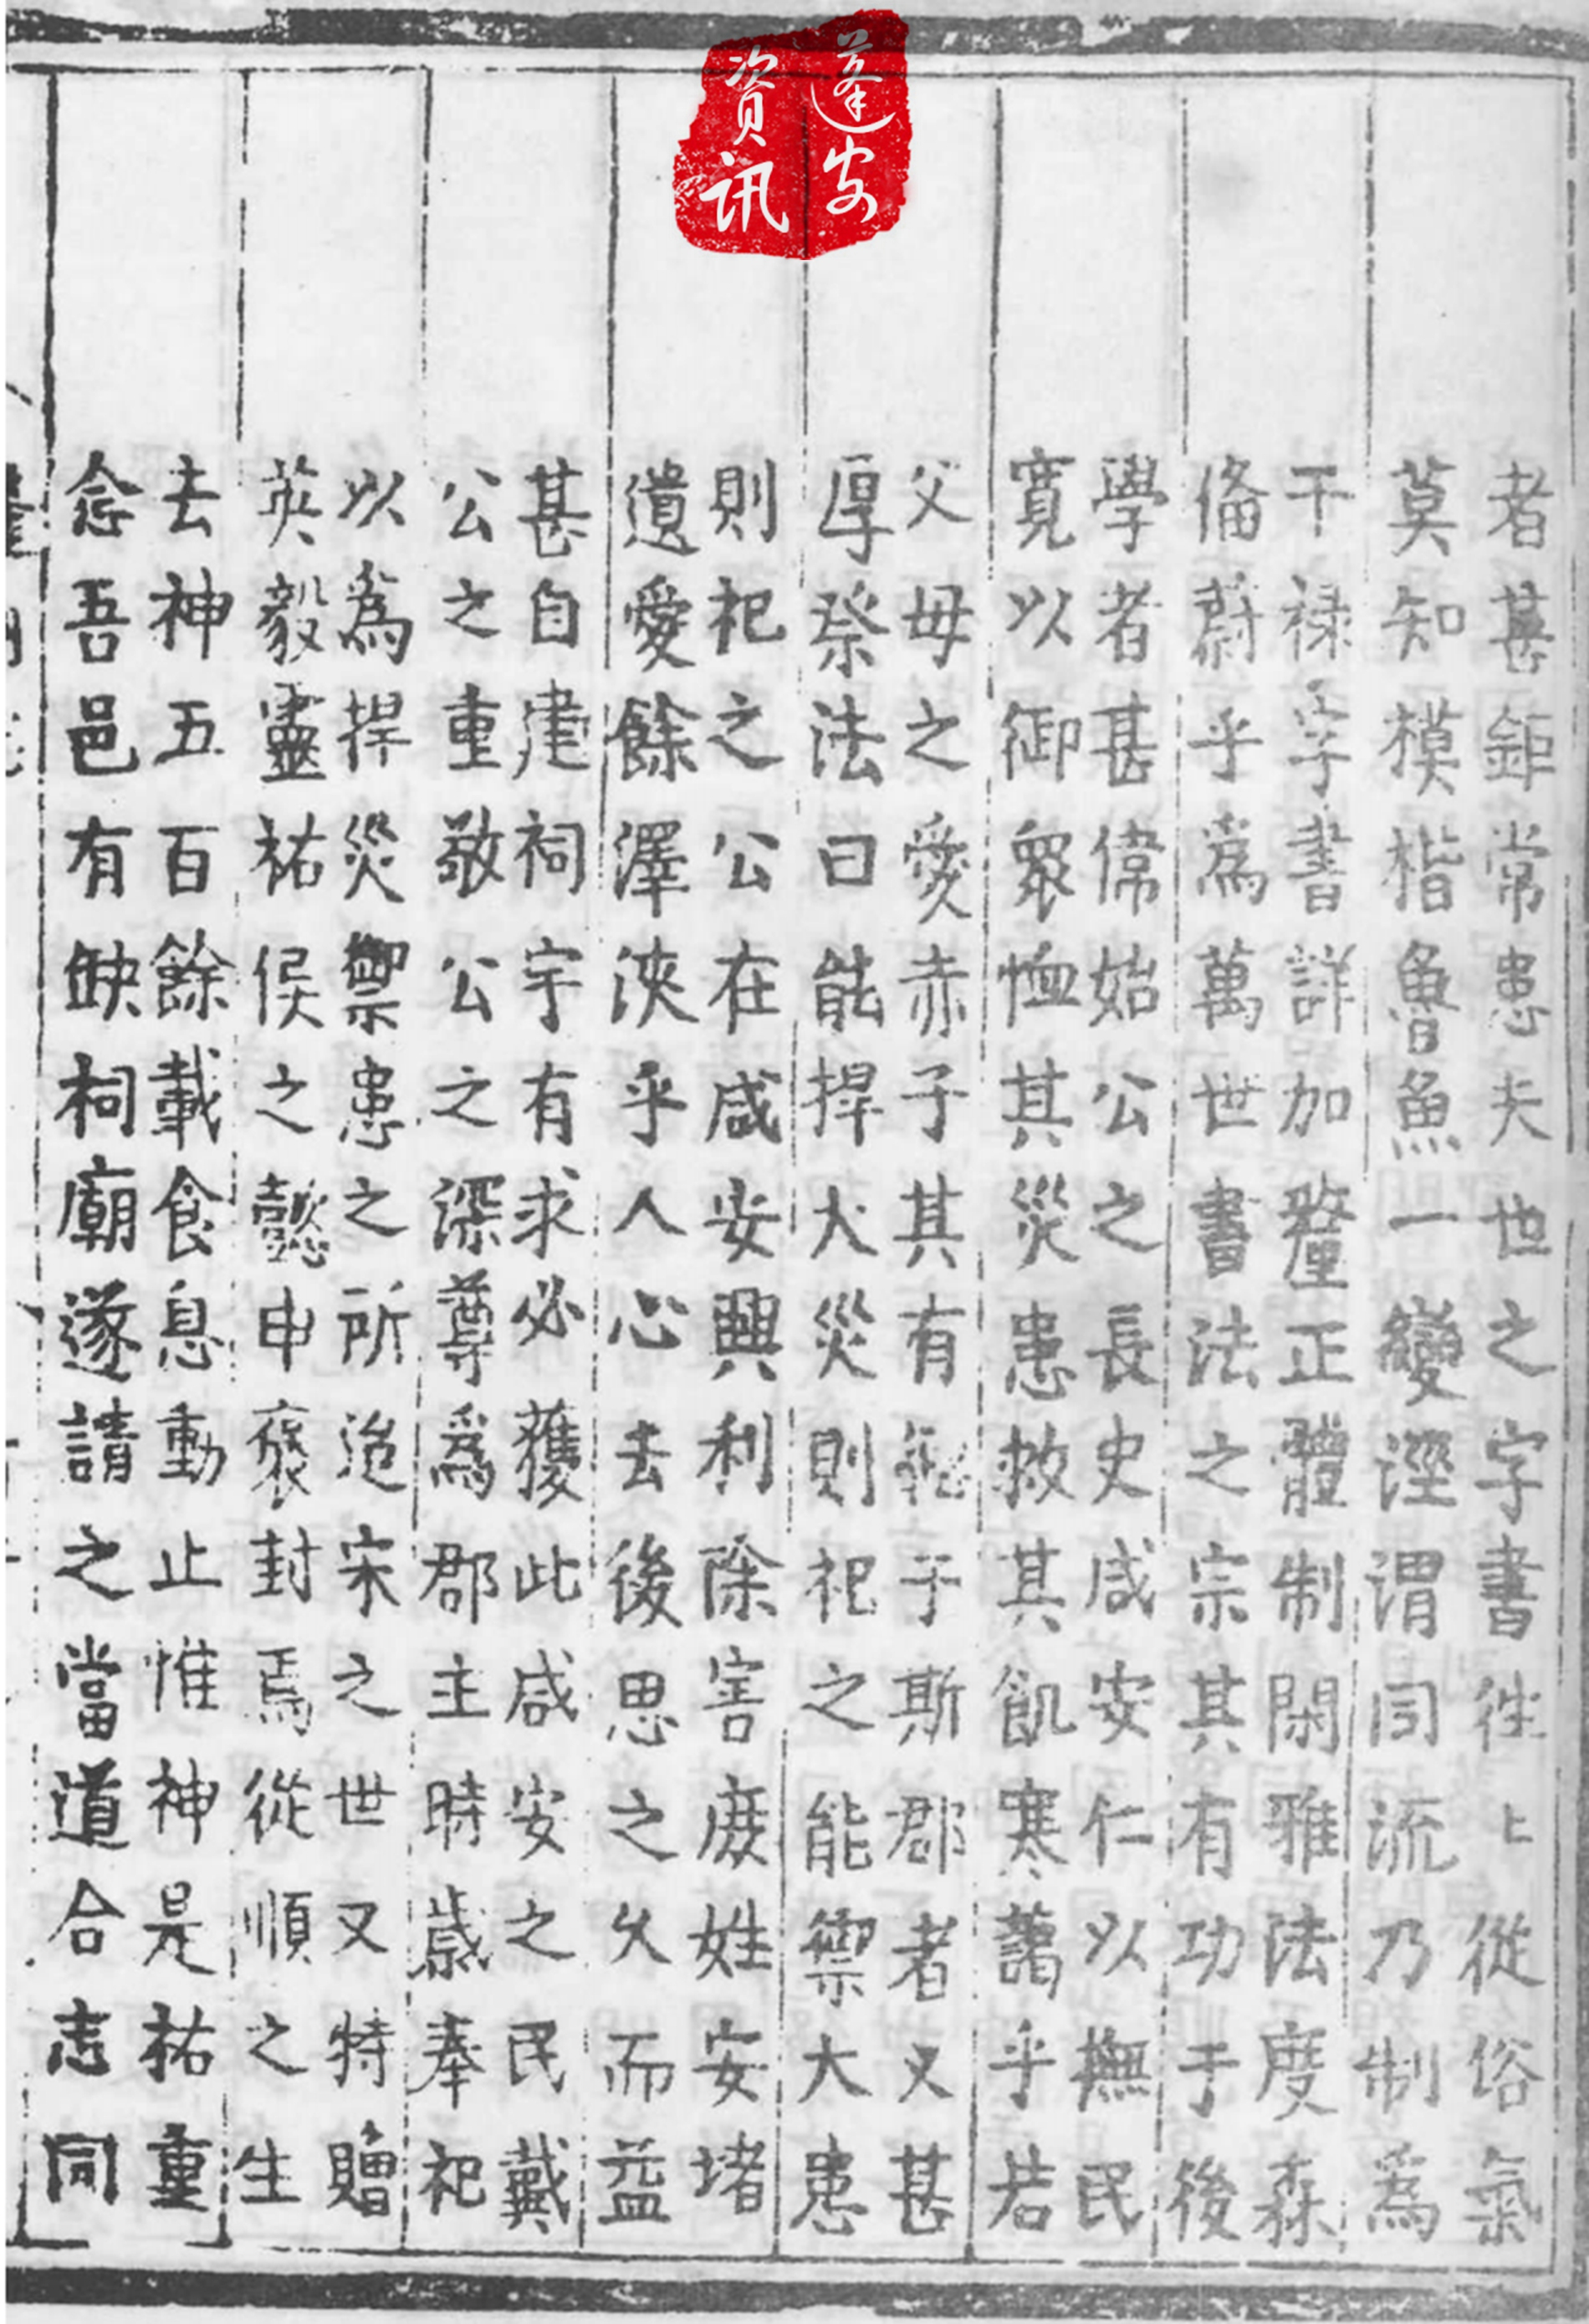 蓬安
資訊
者甚鉅常患夫世之字書徃上從俗氣
莫知模楷魯魚一變涇渭同流乃制為
干禄字書詳加釐正體制閑雅法度森
俻蔚乎為萬世書法之宗其有功于後
學者甚偉始公之長史咸安仁以撫民
寛以御衆恤其災患救其飢寒藹乎若
父母之愛赤子其有於斯郡者又甚
厚祭法曰能捍大災則祀之能禦大患
則祀之公在咸安興利除害庻姓安堵
遺愛餘澤浹乎人心去後思之乆而益
甚自建祠宇有求必獲此咸安之民戴
公之重敬公之深尊為郡主時歲奉祀
以為捍災禦患之所迨宋之世又特贈
英毅靈祐侯之懿申襃封焉從順之生
去神五百餘載食息動止惟神是祐重
念吾邑有缺祠廟遂請之當道合志同